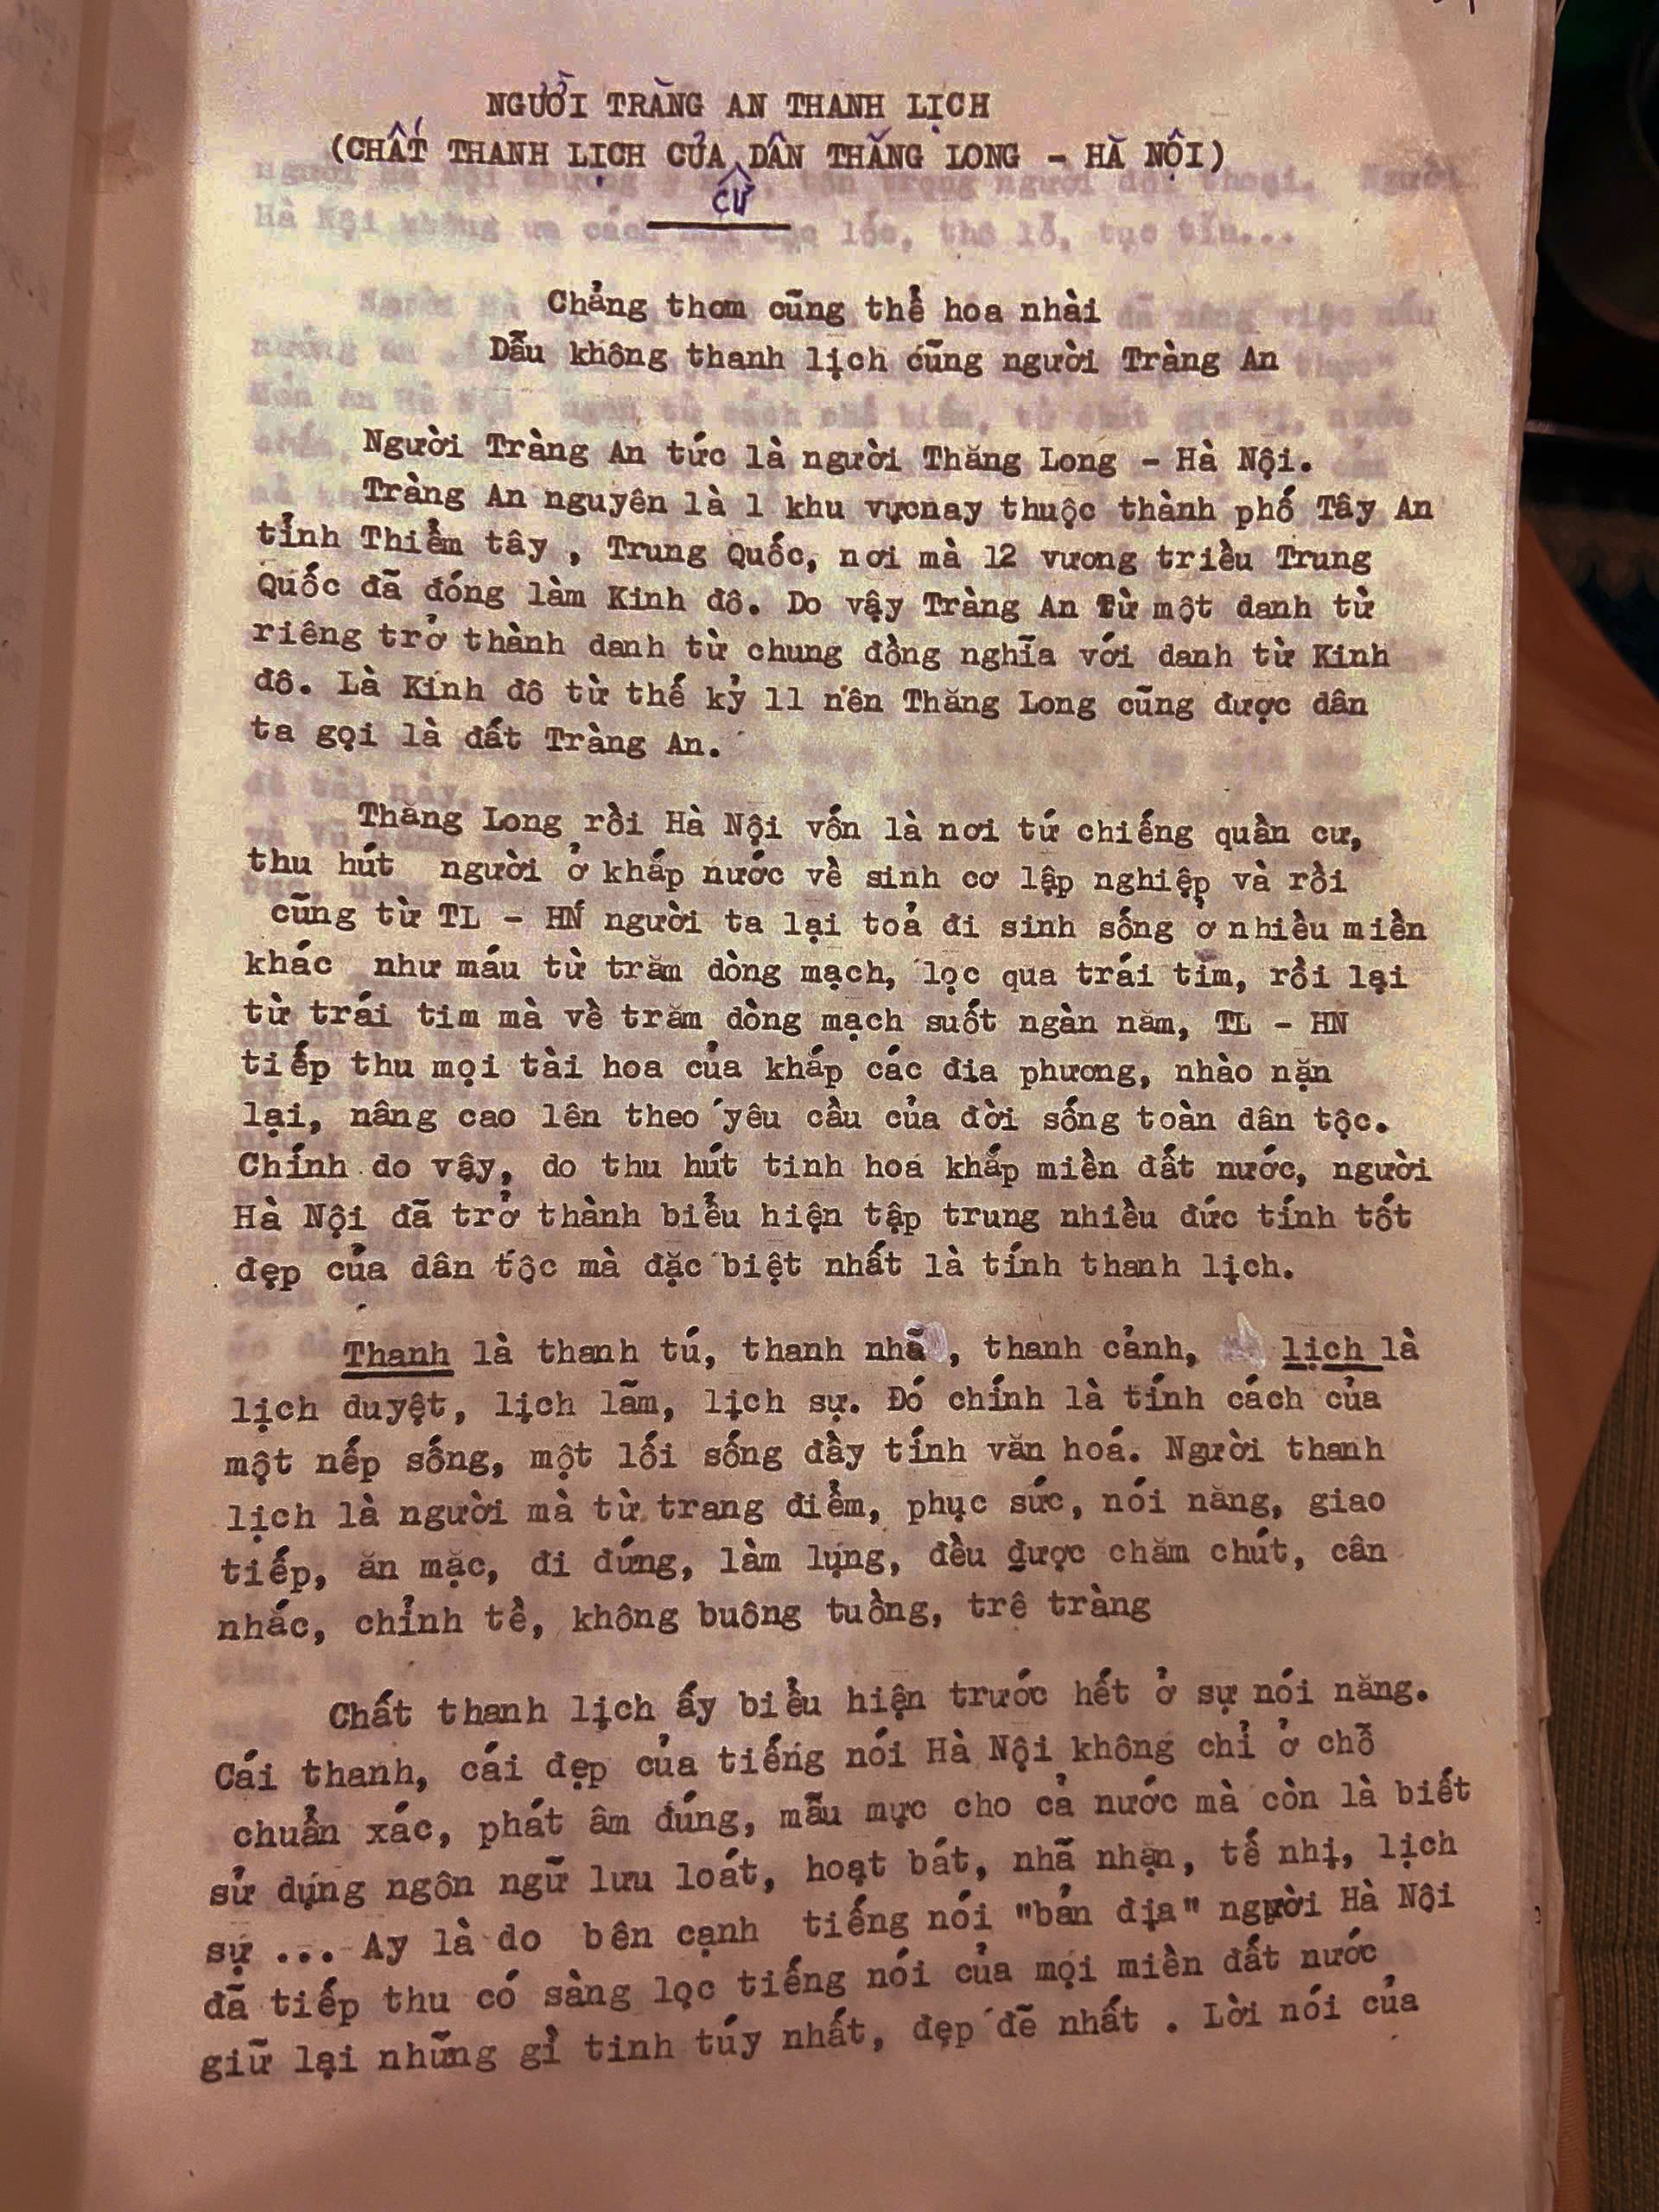 NGƯỜI TRÀNG AN THANH LỊCH
(CHẤT THANH LỊCH CỦA CƯ DÂN THĂNG LONG - HÀ NỘI)
Chẳng thơm cũng thể hoa nhài
Dẫu không thanh lịch cũng người Tràng An
Người Tràng An tức là người Thăng Long - Hà Nội.
Tràng An nguyên là 1 khu vựcnay thuộc thành phố Tây An
tỉnh Thiểm tây , Trung Quốc, nơi mà 12 vương triều Trung
Quốc đã đóng làm Kinh đô. Do vậy Tràng An từ một danh từ
riêng trở thành danh từ chung đồng nghĩa với danh từ Kinh
đô. Là Kinh đô từ thế kỷ 11 nên Thăng Long cũng được dân
ta gọi là đất Tràng An.
Thăng Long rồi Hà Nội vốn là nơi tứ chiếng quần cư,
thu hút người ở khắp nước về sinh cơ lập nghiệp và rồi
cũng từ TL - HN người ta lại toả đi sinh sống ở nhiều miền
khác như máu từ trăm dòng mạch, lọc qua trái tim, rồi lại
từ trái tim mà về trăm dòng mạch suốt ngàn năm, TL - HN
tiếp thu mọi tài hoa của khắp các địa phương, nhào nặn
lại, nâng cao lên theo yêu cầu của đời sống toàn dân tộc.
Chính do vậy, do thu hút tinh hoa khắp miền đất nước, người
Hà Nội đã trở thành biểu hiện tập trung nhiều đức tính tốt
đẹp của dân tộc mà đặc biệt nhất là tính thanh lịch.
Thanh là thanh tú, thanh nhã , thanh cảnh, lịch là
lịch duyệt, lịch lãm, lịch sự. Đó chính là tính cách của
một nếp sống, một lối sống đầy tính văn hoá. Người thanh
lịch là người mà từ trang điểm, phục sức, nói năng, giao
tiếp, ăn mặc, đi đứng, làm lụng, đều được chăm chút, cân
nhắc, chỉnh tề, không buông tuồng, trê tràng
Chất thanh lịch ấy biểu hiện trước hết ở sự nói năng.
Cái thanh, cái đẹp của tiếng nói Hà Nội không chỉ ở chỗ
chuẩn xác, phát âm đúng, mẫu mực cho cả nước mà còn là biết
sử dụng ngôn ngữ lưu loát, hoạt bát, nhã nhặn, tế nhị, lịch
sự ... Ay là do bên cạnh tiếng nói "bản địa" người Hà Nội
đã tiếp thu có sàng lọc tiếng nói của mọi miền đất nước
giữ lại những gì tinh túy nhất, đẹp đẽ nhất . Lời nói của